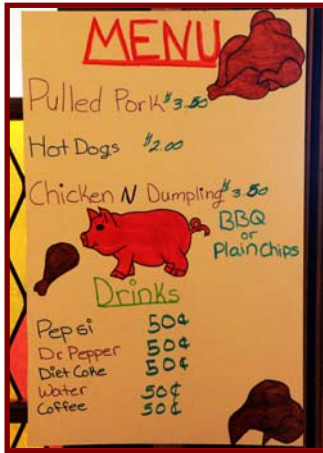 MENU
Pulled Pork $3.50
Hot Dogs $2.00
Chicken N Dumpling $3.50
BBQ
or
Plain Chips
Drinks
Pepsi 50¢
Dr Pepper 50¢
Diet Coke 50¢
Water 50¢
Coffee 50¢